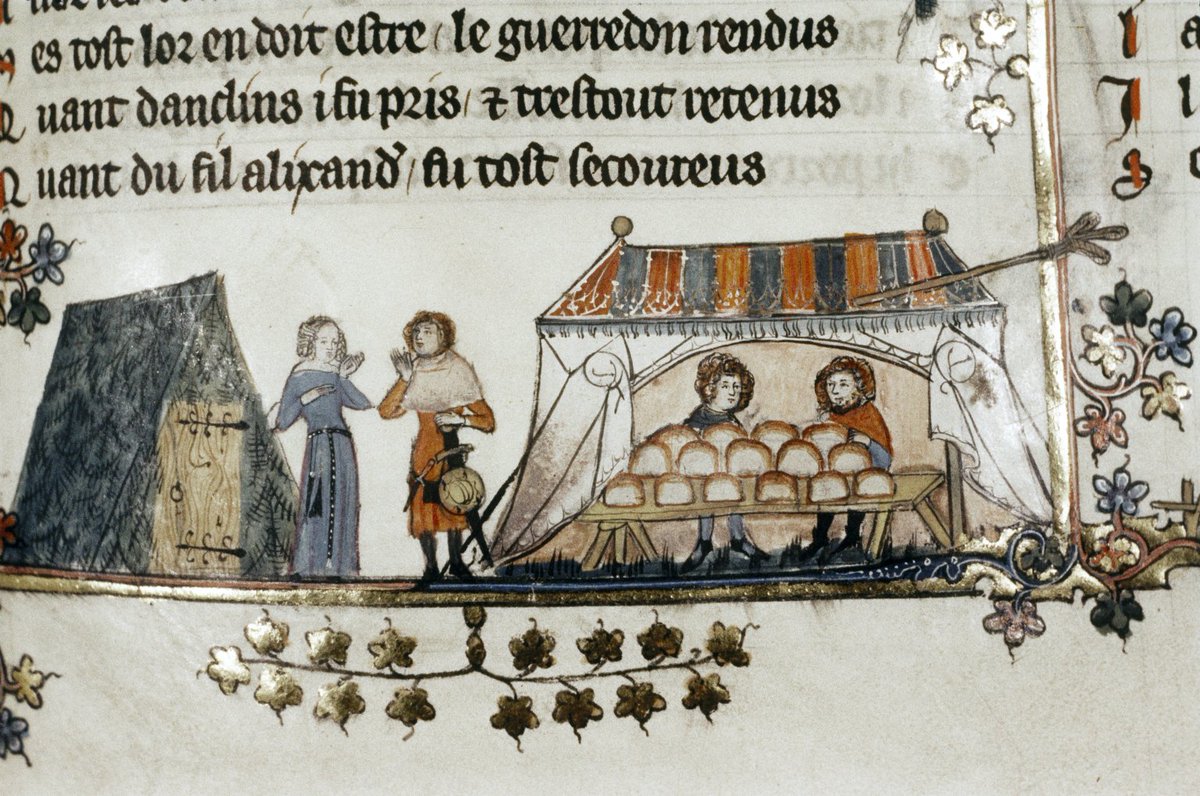 es tost lor en doit estre / le guerredon rendus
Quant danclins i fu pris / ⁊ trestout retenus
Quant du fil alixandʼ / fu tost secoureus